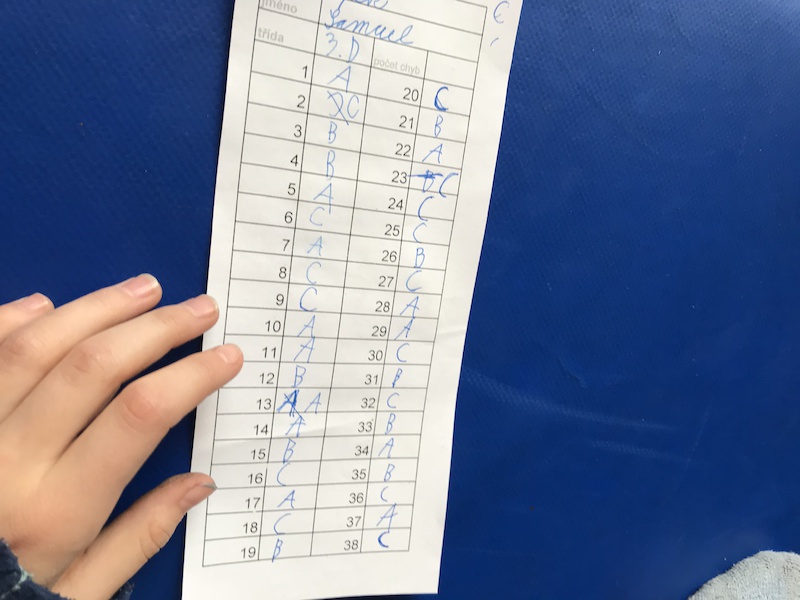 jméno Samuel
třída 3.D počet chyb
1 A
2 C
3 B
4 B
5 A
6 C
7 A
8 C
9 C
10 A
11 A
12 B
13 A
14 A
15 B
16 C
17 A
18 C
19 B
20 C
21 B
22 A
23 C
24 C
25 C
26 B
27 C
28 A
29 A
30 C
31 B
32 C
33 B
34 A
35 B
36 C
37 A
38 C